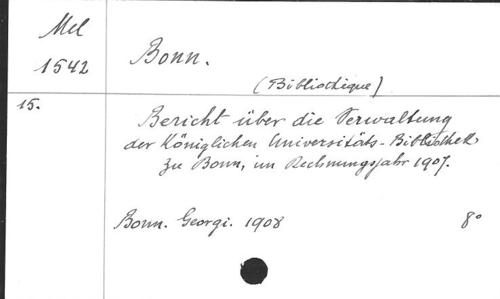 Mel
1542
Bonn.
(Bibliothèque)
15.
Bericht über die Verwaltung
der Königlichen Universitäts-Bibliothek
zu Bonn, im Rechnungsjahr 1907.
Bonn. Georgi. 1908 8°